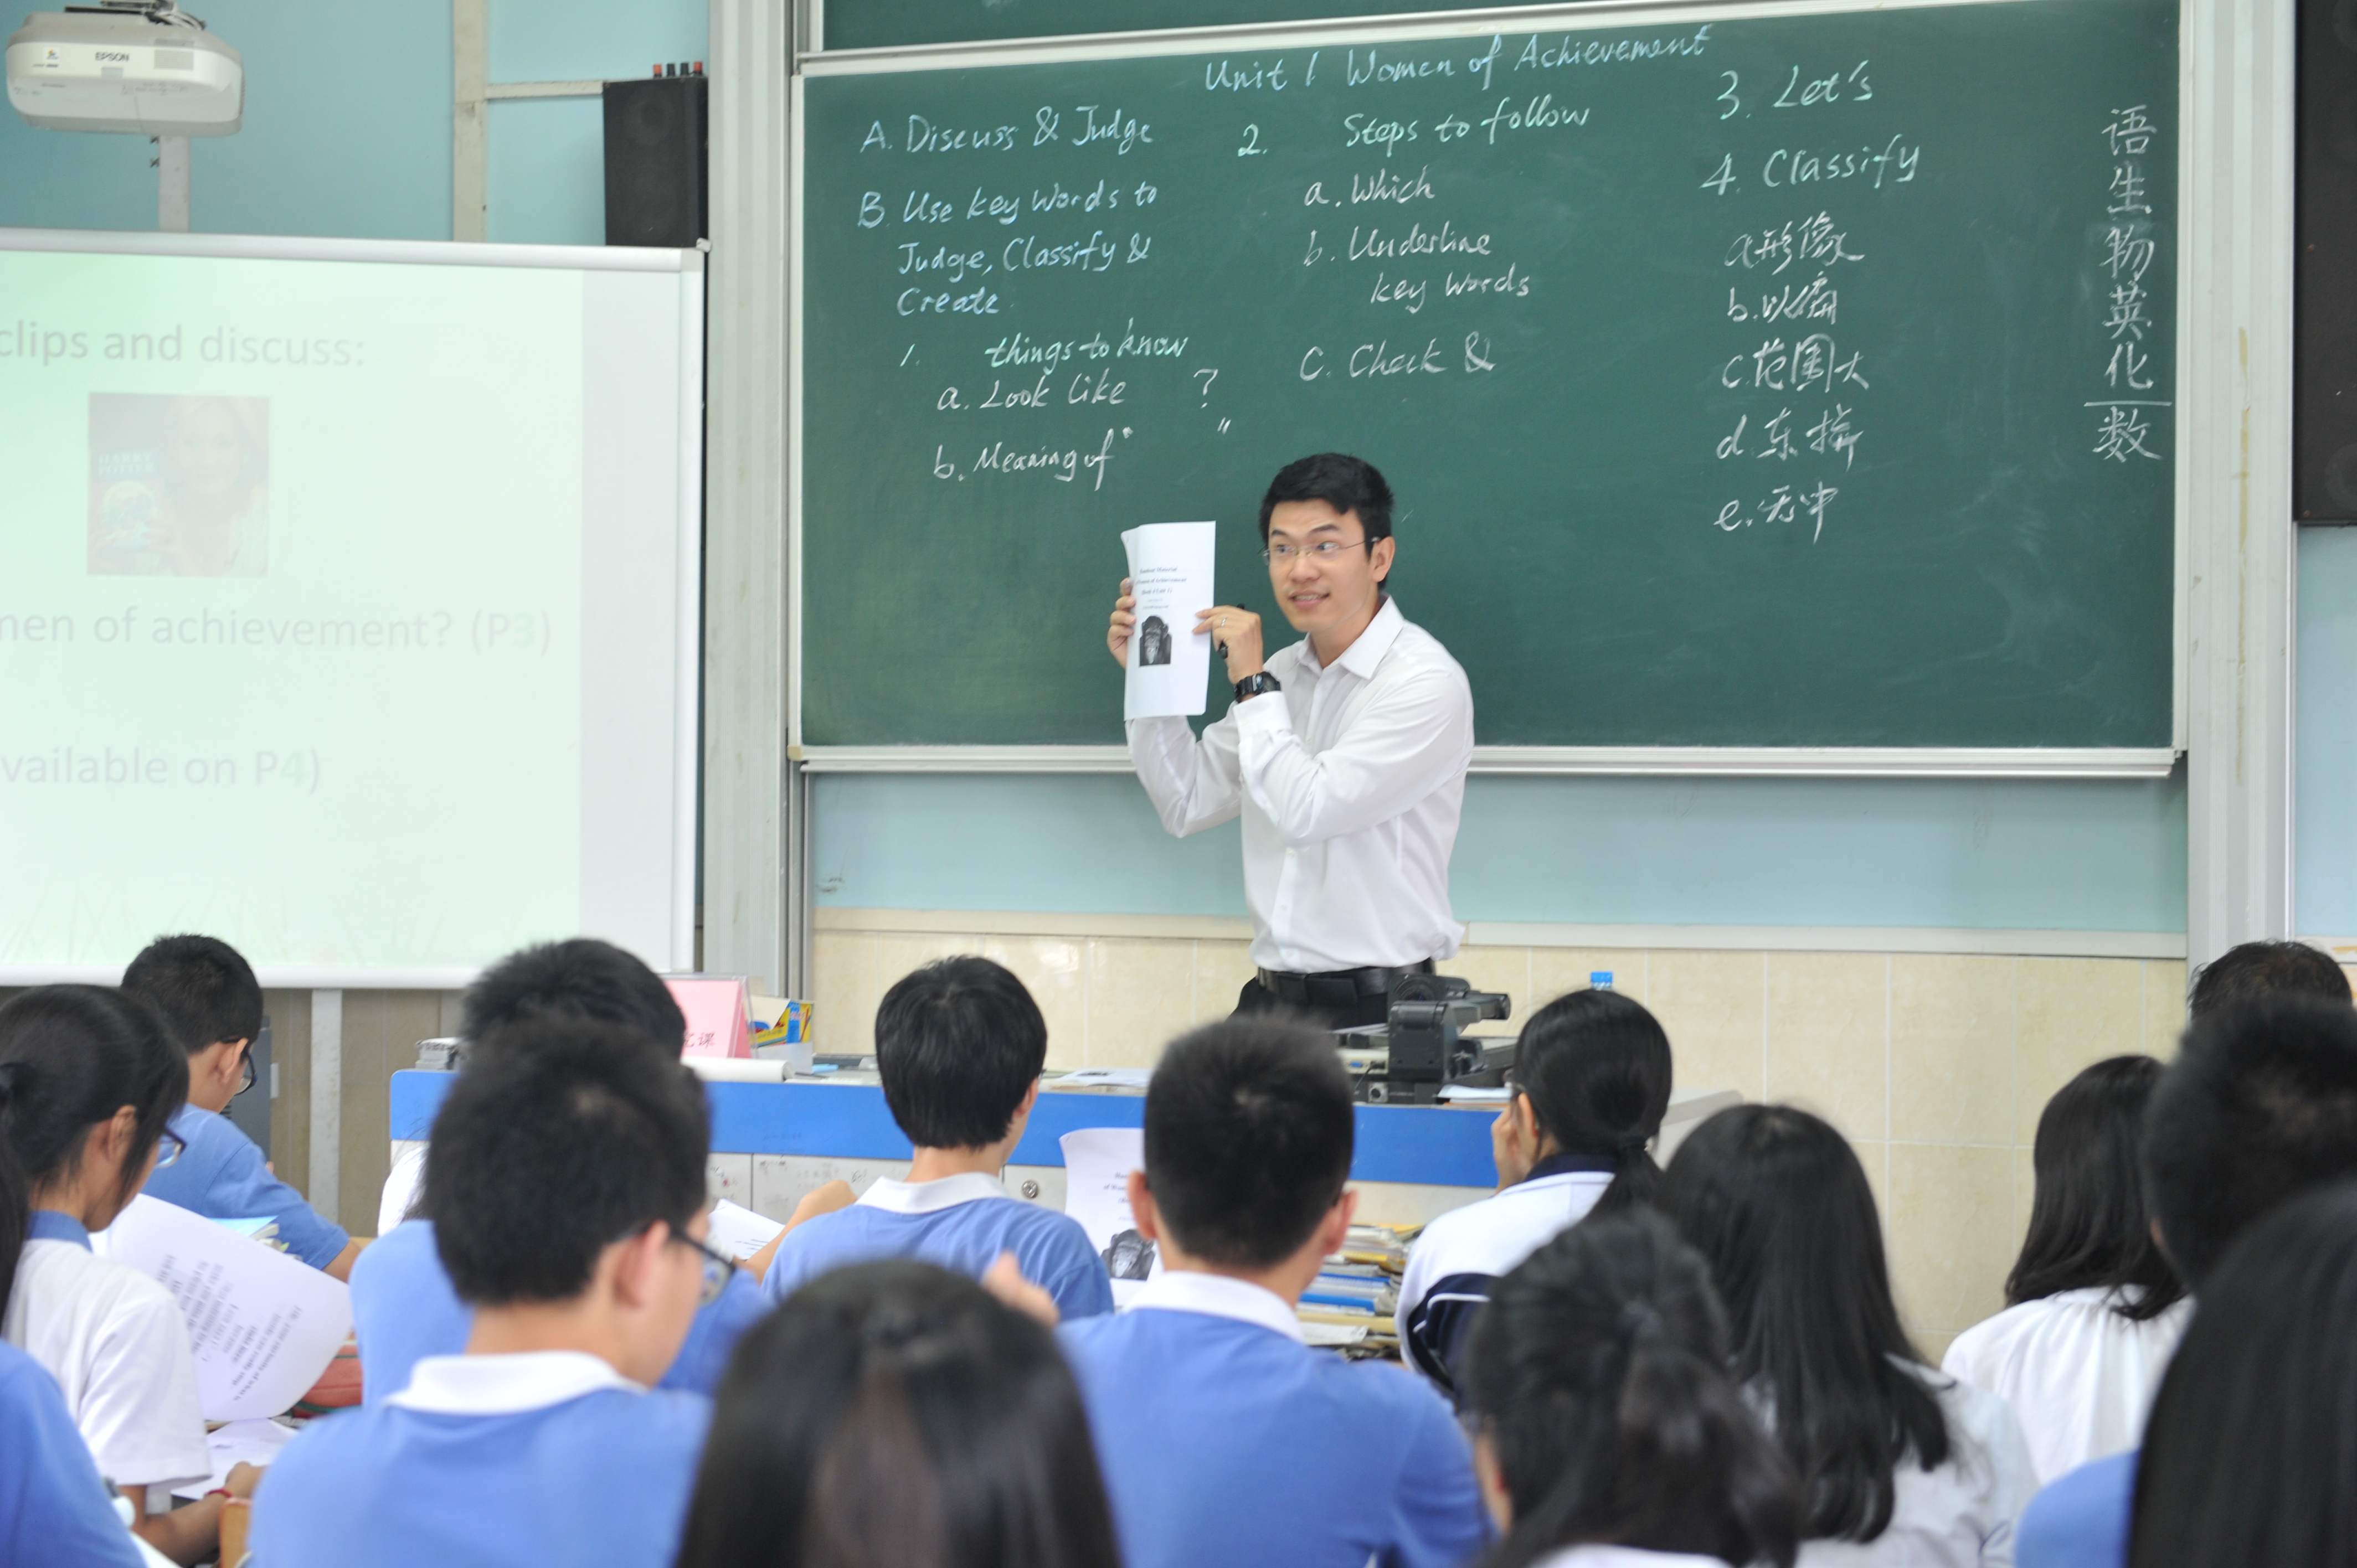 EPSON
clips and discuss:
HARRY
POTTER
men of achievement? (P3)
vailable on P4)
Unit 1 Women of Achievement
A. Discuss & Judge
B. Use key words to
Judge, Classify &
Create.
1. things to know
a. Look like ?
b. Meaning of " "
2. Steps to follow
a. Which
b. Underline
key words
C. Check &
3. Let's
4. Classify
a.形像
b.以偏
c.范围大
d.东拼
e.无中
语生物英化
数
Student Material
Women of Achievement
课